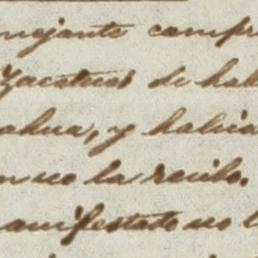 mejante compr
Zacatecas de hab
ahua, y habia
n no la recibo.
anifestado no l